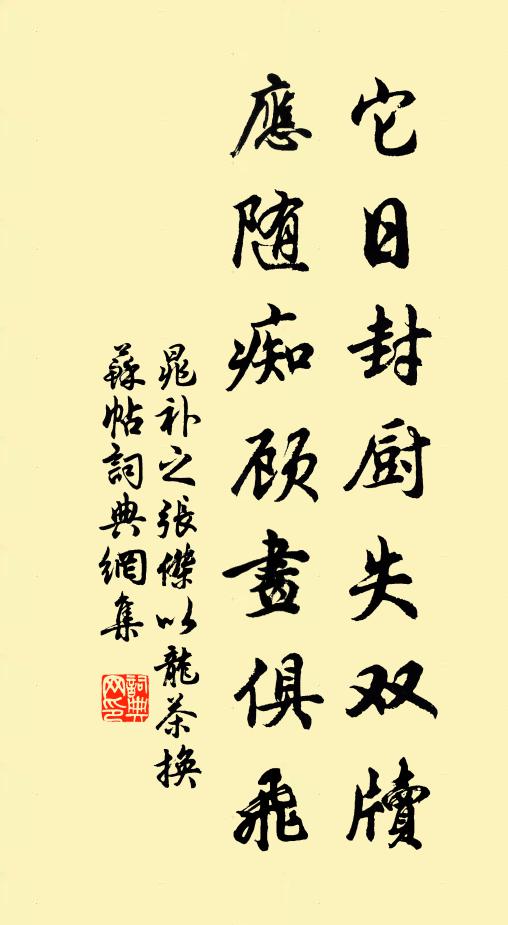 它日封厨失双牍
應随痴顾畫俱飛
晁补之張傑以龍茶換
蘇帖詞典網集
詞典
网印